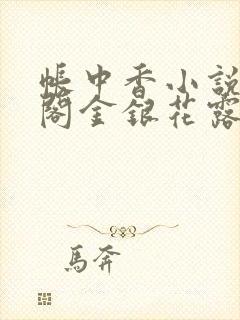 帳中香小說
閣金銀花露
馬奔